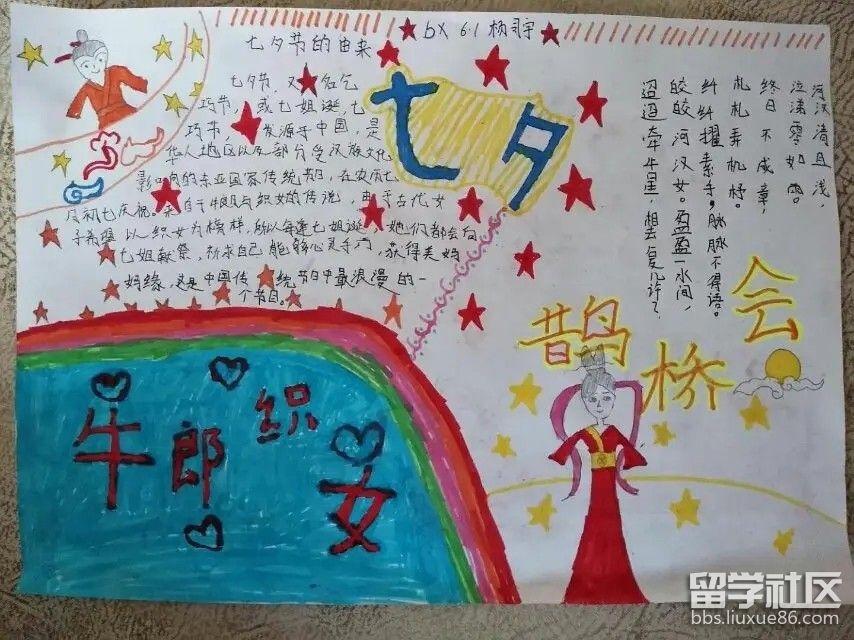 七夕节的由来
bX 6.1 杨羽宇
七夕节，又名乞
巧节，或七姐诞，七
巧节，发源于中国，是
华人地区以及部分受汉族文化
影响的东亚国家传统节日，在农历七
月初七庆祝。来自于牛郎与织女的传说，由于古代女
子希望以织女为榜样，所以每逢七姐诞，她们都会向
七姐献祭，祈求自己能够心灵手巧，获得美妈
妈缘，这是中国传统节日中最浪漫的一
个节日。
七夕
河汉清且浅
泣涕零如雨。
终日不成章，
札札弄机杼。
纤纤擢素手，脉脉不得语。
皎皎河汉女。盈盈一水间，
迢迢牵牛星，相去复几许了
鹊桥会
牛郎织女
留学社区
bbs.liuxue86.com